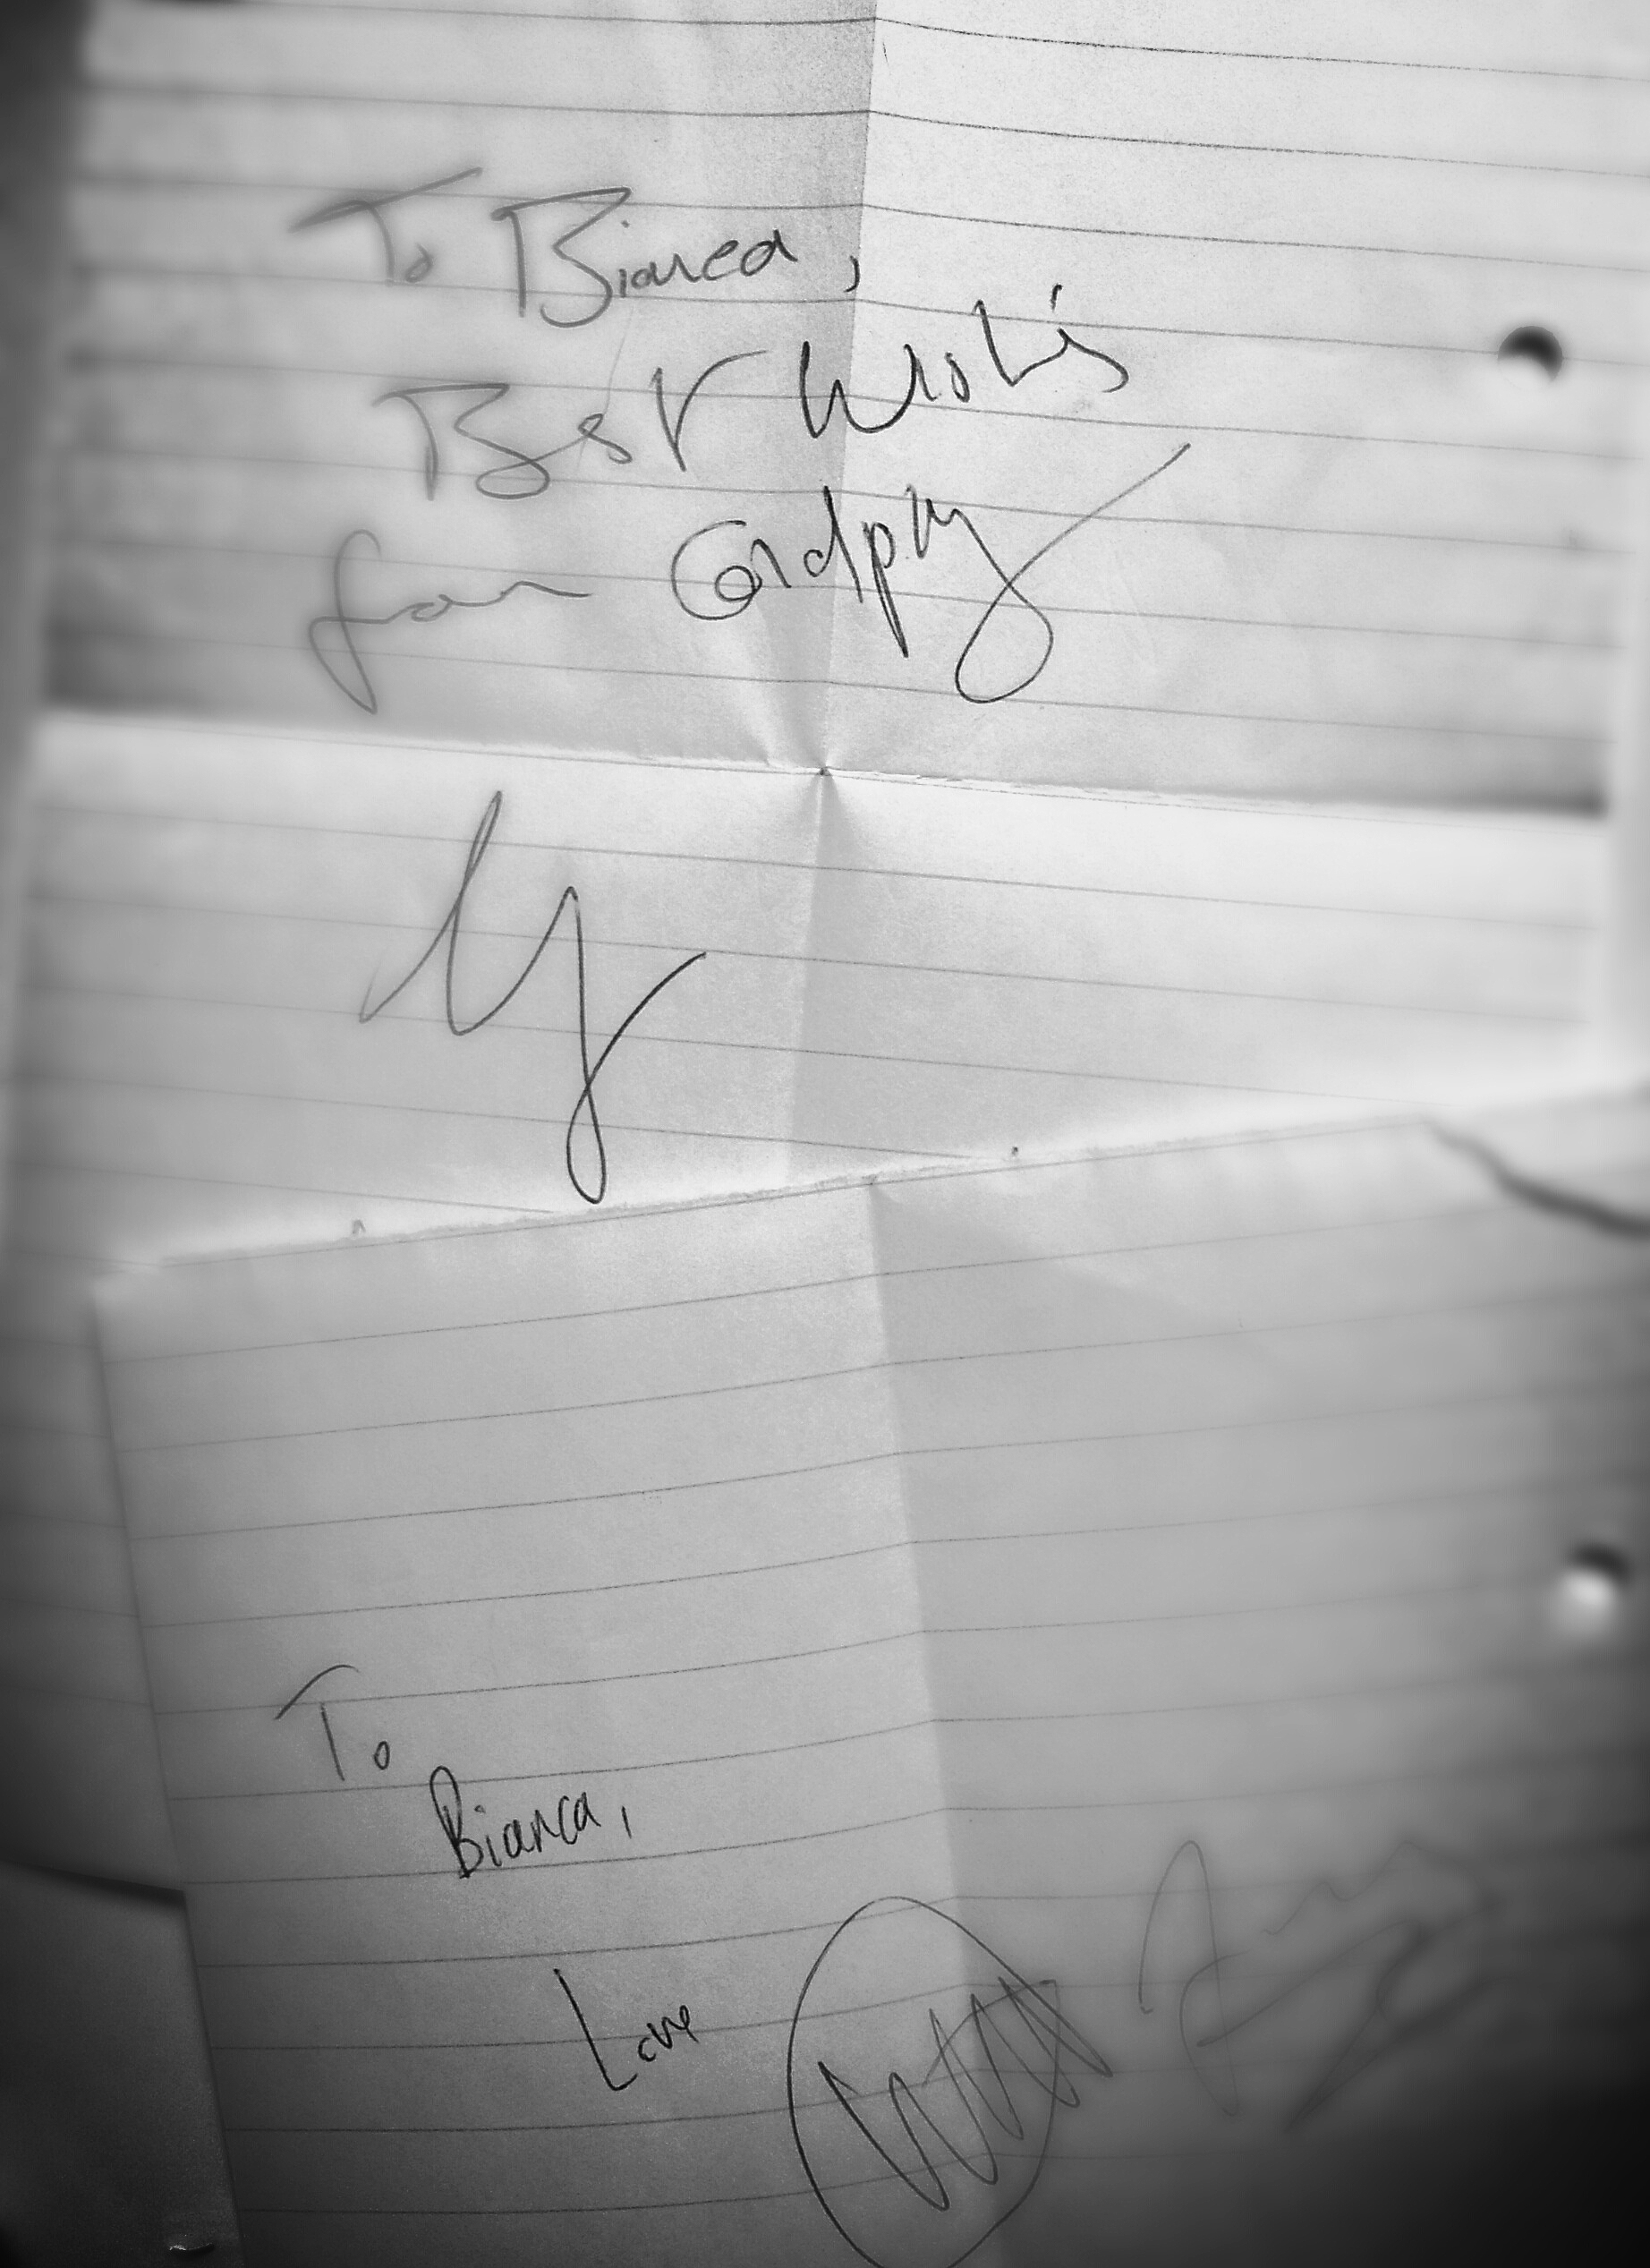 To Bianca,
Best Wishes
from Coldplay
To
Bianca,
Love